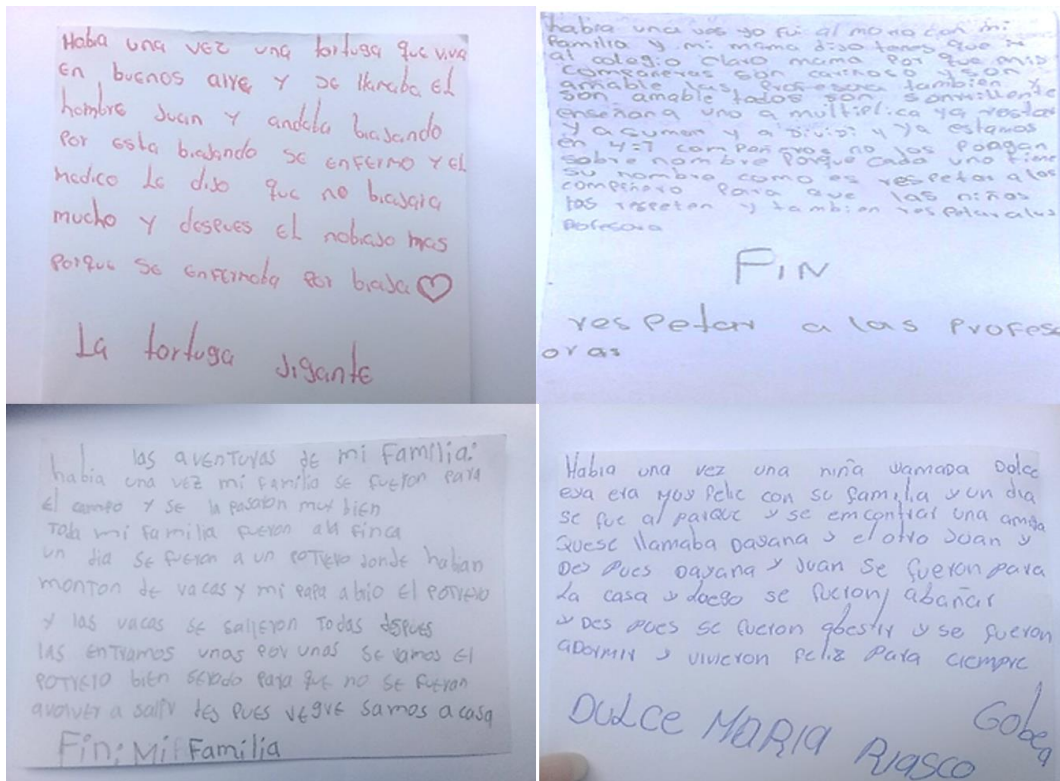 Habia una vez una tortuga que viva
en buenos aire y se llamaba El
hombre Juan y andaba biajando
Por esta biajando se enfermo y el
medico le dijo que no biajara
mucho y despues El nobiajo mas
Porque se enfermaba Por biaja
La tortuga Jigante
habia una ves yo fui al moria con mi
familia y mi mama diso tenes que ir
al colegio claro mama por que mis
compañeras son cariñoso y son
amable las Profesora tambien y
son amable todos son sonrillente
enseñana uno a multiplica ya restar
y a sumar y a dividi y ya estamos
en 4=7 compañeros no los pongan
sobre nombre porque cada uno tiene
su nombre como es respetar a los
compeñero para que las niñas
los respeten y tambien respetar a las
pofesora
FIN
respetar a las Profes
oras
las aventuras de mi Familia:
habia una vez mi familia se fueron para
el campo y se la pasaron muy bien
Toda mi familia fueron ala finca
un dia se fueron a un potrero donde habian
monton de vacas y mi papa abrio El potrero
y las vacas se salieron Todas despues
las entramos unas por unas serramos El
potrero bien serado para que no se fueran
avolver a salir des pues regresamos a casa
Fin; Mi Familia
Habia una vez una niña llamada Dolce
esra era muy felic con su familia y un dia
se fue al parque y se emcontrar una amiga
Quese llamaba Dayana y el otro Juan y
Des pues Dayana y Juan se fueron para
La casa y luego se fueron abañar
y Des pues se fueron abestir y se fueron
aDormir y vivieron feliz para ciempre
DULCE MARIA RIASCO
Gobea